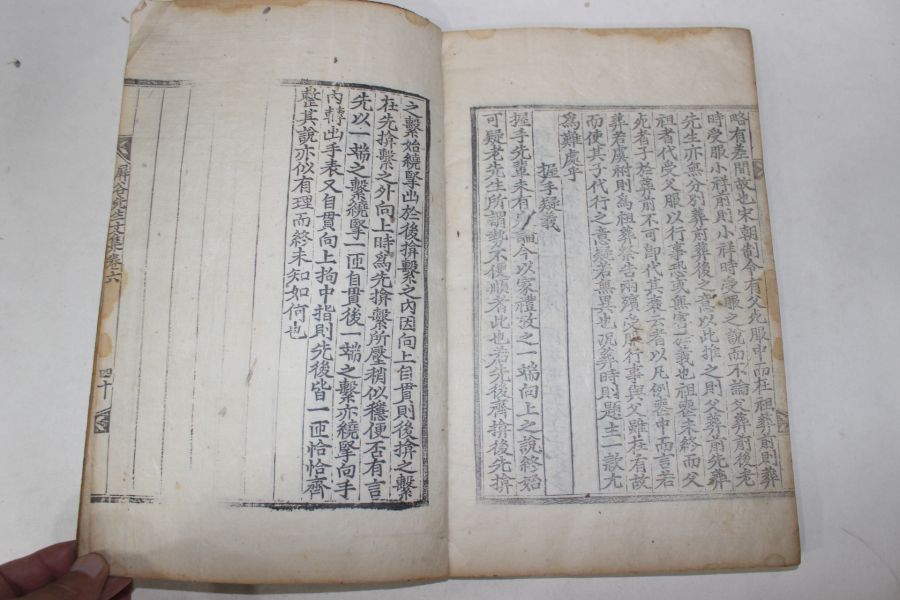 略有差間故也宋朝制令有父死服中而在祖葬前則葬
時受服小祥前則小祥時受服之說而不論父葬前後老
先生亦無分別葬前葬後之意以此推之則父葬前先葬
祖者代父服以行事恐或無害義也祖喪未終而父
死者子於葬前不可卽代其喪云者以凡例喪中而言若
葬若虞祔則爲祖葬祭告兩殯受服行事與父雖在有故
而使其子代行之意變若無異也況葬時則題主一款尤
爲難處乎
握手疑義
握手先輩未有論今以家禮攷之一端向上之說終始
可疑老先生所謂勢不便順者此也若先後齊揜後先揜
之繫始繞掔出於後揜繫之內因向上自貫則後揜之繫
在先揜繫之外向上時爲先揜繫所壓稍似穩便否有言
先以一端之繫繞掔一匝自貫後一端之繫亦繞掔向手
內轉出手表又自貫向上拘中指則先後皆一匝恰恰齊
整其說亦似有理而終未知如何也
屛谷先生文集卷六
四十